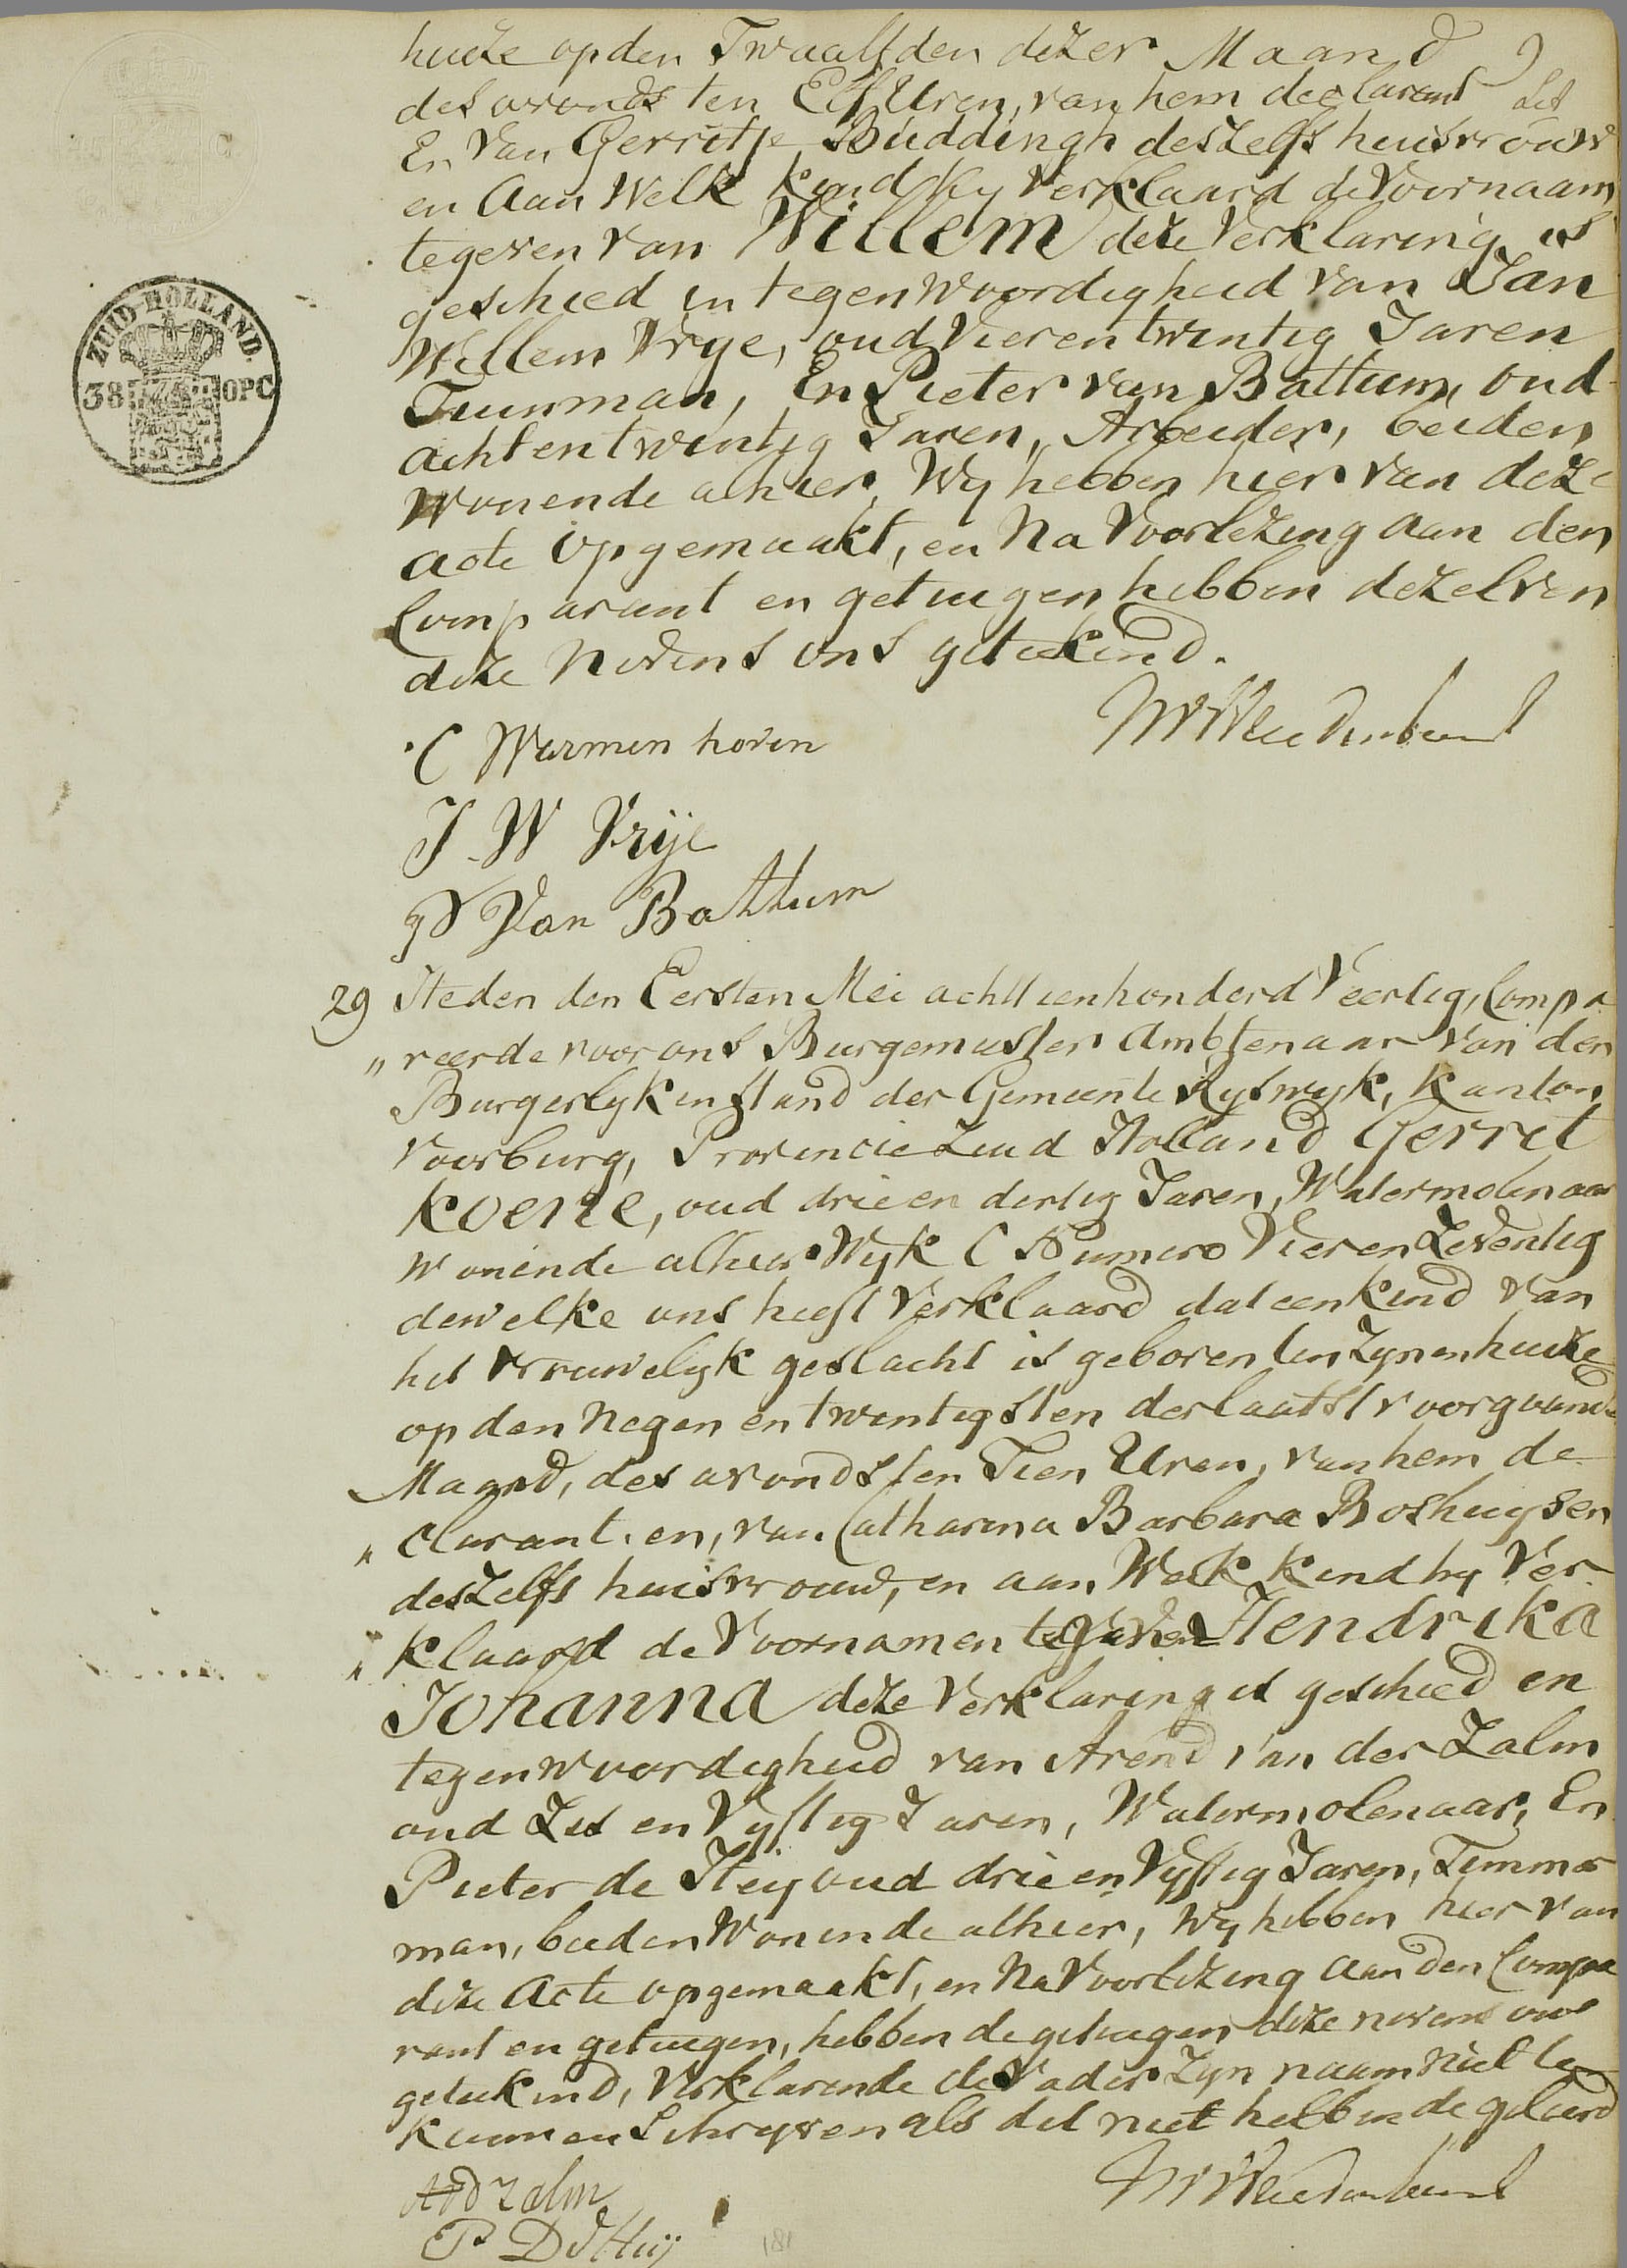 huize op den Twaalfden dezer Maand
des avonds ten Elf Uren, van hem declarant
En Van Gerritje Buddingh deszelfs huisvrouw
en Aan Welk Kind Hy Verklaard de Voornaam
te geven van Willem deze Verklaring is
geschied in tegenwoordigheid van Jan
Willem Vrye, oud Vierentwintig Jaren
Tuinman, En Pieter van Battum, oud
achtentwintig Jaren, Arbeider, beiden
Wonende alhier, Wy hebben hier van deze
acte Opgemaakt, en Na Voorlezing aan den
Comparant en getuigen hebben dezelven
deze Nevens ons getekend.
C Warmenhoven
J W Vrije
P Van Battum
29 Heden den Eersten Mei achttienhonderd Veertig, Compa
" reerde voor ons Burgemeester Ambtenaar Van den
Burgerlyken stand der Gemeente Ryswyk, Kanton
Voorburg, Provincie Zuid Holland Gerrit
Koene, oud drie en dertig Jaren, Watermolenaar
Wonende alhier Wyk C Numero Vier en Zeventig
dewelke ons heeft Verklaard dat een Kind van
het Vrouwelyk geslacht is geboren ten Zynen huize
op den Negen en twentigsten der laatst voorgaande
Maand, des avonds ten Tien Uren, van hem de
" clarant. en, van Catharina Barbara Boshuysen
deszelfs huisvrouw, en aan Welk Kind hy Ver
" klaard de Voornamen te geven Hendrika
Johanna deze Verklaring is geschied en
tegenwoordigheid van Arend van der Zalm
oud Zes en Vyftig Jaren, Watermolenaar, En
Pieter de Heij oud drie en Vyftig Jaren, Timmer
man, beiden Wonende alhier, Wy hebben hier van
deze Acte opgemaakt, en Na Voorlezing aan den Compa
rant en getuigen, hebben de getuigen deze nevens ons
getekend, Verklarende de Vader Zyn naam Niet te
Kunnen Schryven als dit niet hebbende geleerd
A v d Zalm
P D Heij
181
ZUID-HOLLAND.
38 OPC